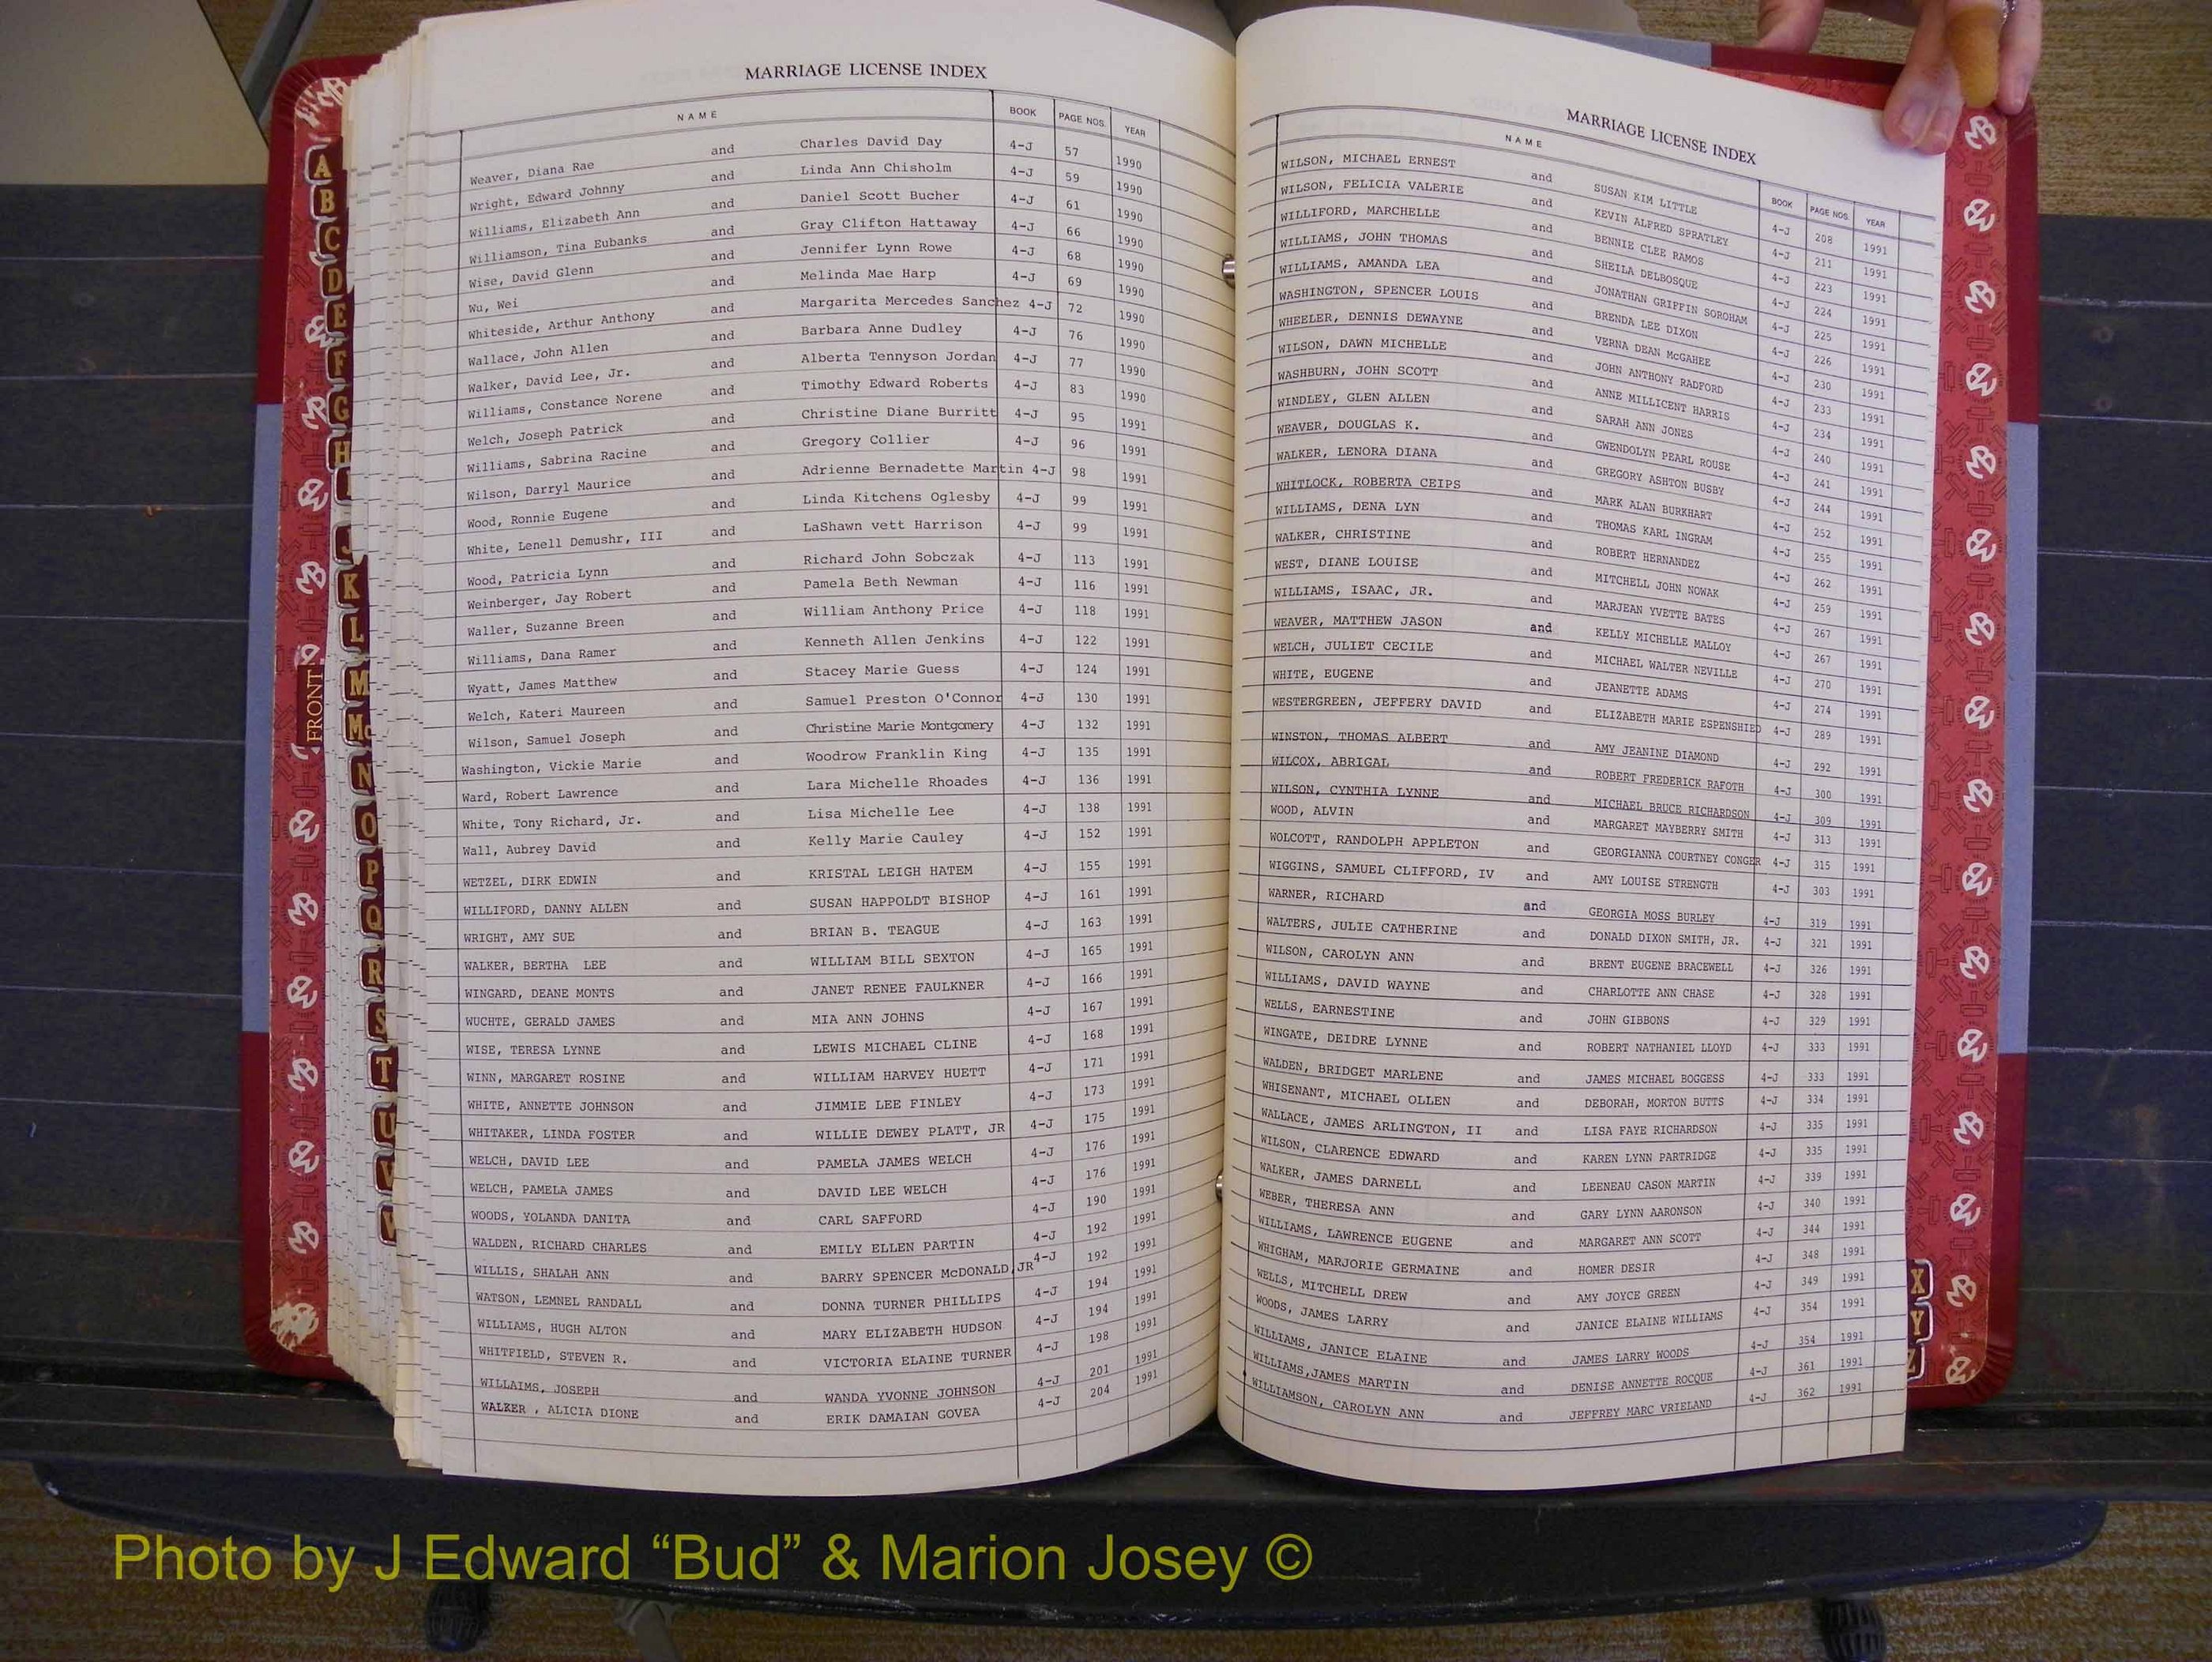 MARRIAGE LICENSE INDEX
NAME BOOK PAGE NOS. YEAR
Weaver, Diana Rae and Charles David Day 4-J 57 1990
Wright, Edward Johnny and Linda Ann Chisholm 4-J 59 1990
Williams, Elizabeth Ann and Daniel Scott Bucher 4-J 61 1990
Williamson, Tina Eubanks and Gray Clifton Hattaway 4-J 66 1990
Wise, David Glenn and Jennifer Lynn Rowe 4-J 68 1990
Wu, Wei and Melinda Mae Harp 4-J 69 1990
Whiteside, Arthur Anthony and Margarita Mercedes Sanchez 4-J 72 1990
Wallace, John Allen and Barbara Anne Dudley 4-J 76 1990
Walker, David Lee, Jr. and Alberta Tennyson Jordan 4-J 77 1990
Williams, Constance Norene and Timothy Edward Roberts 4-J 83 1990
Welch, Joseph Patrick and Christine Diane Burritt 4-J 95 1991
Williams, Sabrina Racine and Gregory Collier 4-J 96 1991
Wilson, Darryl Maurice and Adrienne Bernadette Martin 4-J 98 1991
Wood, Ronnie Eugene and Linda Kitchens Oglesby 4-J 99 1991
White, Lenell Demushr, III and LaShawn vett Harrison 4-J 99 1991
Wood, Patricia Lynn and Richard John Sobczak 4-J 113 1991
Weinberger, Jay Robert and Pamela Beth Newman 4-J 116 1991
Waller, Suzanne Breen and William Anthony Price 4-J 118 1991
Williams, Dana Ramer and Kenneth Allen Jenkins 4-J 122 1991
Wyatt, James Matthew and Stacey Marie Guess 4-J 124 1991
Welch, Kateri Maureen and Samuel Preston O'Connor 4-J 130 1991
Wilson, Samuel Joseph and Christine Marie Montgomery 4-J 132 1991
Washington, Vickie Marie and Woodrow Franklin King 4-J 135 1991
Ward, Robert Lawrence and Lara Michelle Rhoades 4-J 136 1991
White, Tony Richard, Jr. and Lisa Michelle Lee 4-J 138 1991
Wall, Aubrey David and Kelly Marie Cauley 4-J 152 1991
WETZEL, DIRK EDWIN and KRISTAL LEIGH HATEM 4-J 155 1991
WILLIFORD, DANNY ALLEN and SUSAN HAPPOLDT BISHOP 4-J 161 1991
WRIGHT, AMY SUE and BRIAN B. TEAGUE 4-J 163 1991
WALKER, BERTHA LEE and WILLIAM BILL SEXTON 4-J 165 1991
WINGARD, DEANE MONTS and JANET RENEE FAULKNER 4-J 166 1991
WUCHTE, GERALD JAMES and MIA ANN JOHNS 4-J 167 1991
WISE, TERESA LYNNE and LEWIS MICHAEL CLINE 4-J 168 1991
WINN, MARGARET ROSINE and WILLIAM HARVEY HUETT 4-J 171 1991
WHITE, ANNETTE JOHNSON and JIMMIE LEE FINLEY 4-J 173 1991
WHITAKER, LINDA FOSTER and WILLIE DEWEY PLATT, JR 4-J 175 1991
WELCH, DAVID LEE and PAMELA JAMES WELCH 4-J 176 1991
WELCH, PAMELA JAMES and DAVID LEE WELCH 4-J 176 1991
WOODS, YOLANDA DANITA and CARL SAFFORD 4-J 190 1991
WALDEN, RICHARD CHARLES and EMILY ELLEN PARTIN 4-J 192 1991
WILLIS, SHALAH ANN and BARRY SPENCER McDONALD,JR 4-J 192 1991
WATSON, LEMNEL RANDALL and DONNA TURNER PHILLIPS 4-J 194 1991
WILLIAMS, HUGH ALTON and MARY ELIZABETH HUDSON 4-J 194 1991
WHITFIELD, STEVEN R. and VICTORIA ELAINE TURNER 4-J 198 1991
WILLAIMS, JOSEPH and WANDA YVONNE JOHNSON 4-J 201 1991
WALKER , ALICIA DIONE and ERIK DAMAIAN GOVEA 4-J 204 1991
MARRIAGE LICENSE INDEX
NAME BOOK PAGE NOS. YEAR
WILSON, MICHAEL ERNEST and SUSAN KIM LITTLE 4-J 208 1991
WILSON, FELICIA VALERIE and KEVIN ALFRED SPRATLEY 4-J 211 1991
WILLIFORD, MARCHELLE and BENNIE CLEE RAMOS 4-J 223 1991
WILLIAMS, JOHN THOMAS and SHEILA DELBOSQUE 4-J 224 1991
WILLIAMS, AMANDA LEA and JONATHAN GRIFFIN SOROHAM 4-J 225 1991
WASHINGTON, SPENCER LOUIS and BRENDA LEE DIXON 4-J 226 1991
WHEELER, DENNIS DEWAYNE and VERNA DEAN McGAHEE 4-J 230 1991
WILSON, DAWN MICHELLE and JOHN ANTHONY RADFORD 4-J 233 1991
WASHBURN, JOHN SCOTT and ANNE MILLICENT HARRIS 4-J 234 1991
WINDLEY, GLEN ALLEN and SARAH ANN JONES 4-J 240 1991
WEAVER, DOUGLAS K. and GWENDOLYN PEARL ROUSE 4-J 241 1991
WALKER, LENORA DIANA and GREGORY ASHTON BUSBY 4-J 244 1991
WHITLOCK, ROBERTA CEIPS and MARK ALAN BURKHART 4-J 252 1991
WILLIAMS, DENA LYN and THOMAS KARL INGRAM 4-J 255 1991
WALKER, CHRISTINE and ROBERT HERNANDEZ 4-J 262 1991
WEST, DIANE LOUISE and MITCHELL JOHN NOWAK 4-J 259 1991
WILLIAMS, ISAAC, JR. and MARJEAN YVETTE BATES 4-J 267 1991
WEAVER, MATTHEW JASON and KELLY MICHELLE MALLOY 4-J 267 1991
WELCH, JULIET CECILE and MICHAEL WALTER NEVILLE 4-J 270 1991
WHITE, EUGENE and JEANETTE ADAMS 4-J 274 1991
WESTERGREEN, JEFFERY DAVID and ELIZABETH MARIE ESPENSHIED 4-J 289 1991
WINSTON, THOMAS ALBERT and AMY JEANINE DIAMOND 4-J 292 1991
WILCOX, ABRIGAL and ROBERT FREDERICK RAFOTH 4-J 300 1991
WILSON, CYNTHIA LYNNE and MICHAEL BRUCE RICHARDSON 4-J 309 1991
WOOD, ALVIN and MARGARET MAYBERRY SMITH 4-J 313 1991
WOLCOTT, RANDOLPH APPLETON and GEORGIANNA COURTNEY CONGER 4-J 315 1991
WIGGINS, SAMUEL CLIFFORD, IV and AMY LOUISE STRENGTH 4-J 303 1991
WARNER, RICHARD and GEORGIA MOSS BURLEY 4-J 319 1991
WALTERS, JULIE CATHERINE and DONALD DIXON SMITH, JR. 4-J 321 1991
WILSON, CAROLYN ANN and BRENT EUGENE BRACEWELL 4-J 326 1991
WILLIAMS, DAVID WAYNE and CHARLOTTE ANN CHASE 4-J 328 1991
WELLS, EARNESTINE and JOHN GIBBONS 4-J 329 1991
WINGATE, DEIDRE LYNNE and ROBERT NATHANIEL LLOYD 4-J 333 1991
WALDEN, BRIDGET MARLENE and JAMES MICHAEL BOGGESS 4-J 333 1991
WHISENANT, MICHAEL OLLEN and DEBORAH, MORTON BUTTS 4-J 334 1991
WALLACE, JAMES ARLINGTON, II and LISA FAYE RICHARDSON 4-J 335 1991
WILSON, CLARENCE EDWARD and KAREN LYNN PARTRIDGE 4-J 335 1991
WALKER, JAMES DARNELL and LEENEAU CASON MARTIN 4-J 339 1991
WEBER, THERESA ANN and GARY LYNN AARONSON 4-J 340 1991
WILLIAMS, LAWRENCE EUGENE and MARGARET ANN SCOTT 4-J 344 1991
WHIGHAM, MARJORIE GERMAINE and HOMER DESIR 4-J 348 1991
WELLS, MITCHELL DREW and AMY JOYCE GREEN 4-J 349 1991
WOODS, JAMES LARRY and JANICE ELAINE WILLIAMS 4-J 354 1991
WILLIAMS, JANICE ELAINE and JAMES LARRY WOODS 4-J 354 1991
WILLIAMS,JAMES MARTIN and DENISE ANNETTE ROCQUE 4-J 361 1991
WILLIAMSON, CAROLYN ANN and JEFFREY MARC VRIELAND 4-J 362 1991
A
B
C
D
E
F
G
H
J
K
L
M
Mc
N
O
P
Q
R
S
T
U
V
X
Y
Z
FRONT
Photo by J Edward “Bud” & Marion Josey ©